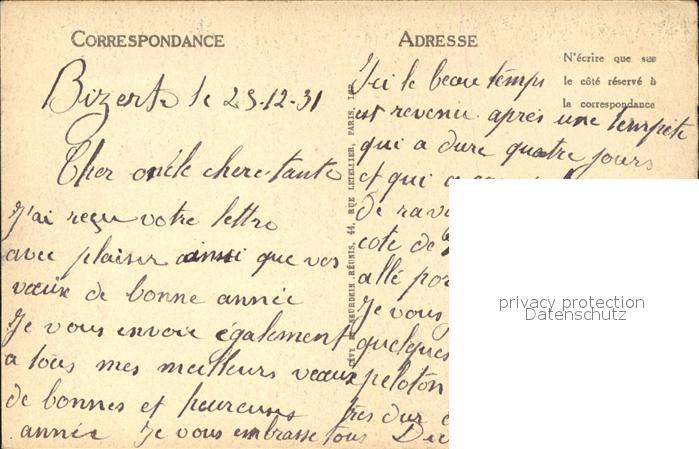 CORRESPONDANCE
Bizerte le 23-12-31
Cher oncle chere tante
J'ai reçu votre lettre
avec plaisir ainsi que vos
vœux de bonne année
Je vous envoie également
a tous mes meilleurs vœux
de bonnes et heureuses
année Je vous embrasse tous
LÉVY ET NEURDEIN RÉUNIS, 44, RUE LETELLIER, PARIS
ADRESSE
N'écrire que sur
le côté réservé à
la correspondance
Ici le beau temps
est revenu après une tempête
qui a dure quatre jours
et qui a
de
cote de
allé
Je vous
quelques
peloton
tres dur
privacy protection
Datenschutz